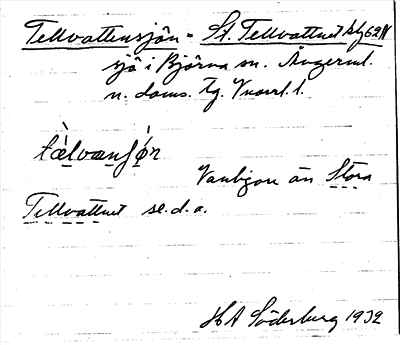 Tellvattensjön = St. Tellvattnet kbl 62 N
sjö i Björna sn. Ångerml.
n. doms. tg. Vnorrl. l.
tæ̀lvanʃǿn
Vanligare än Stora
Tellvattnet se. d. o.
HA Söderberg 1932